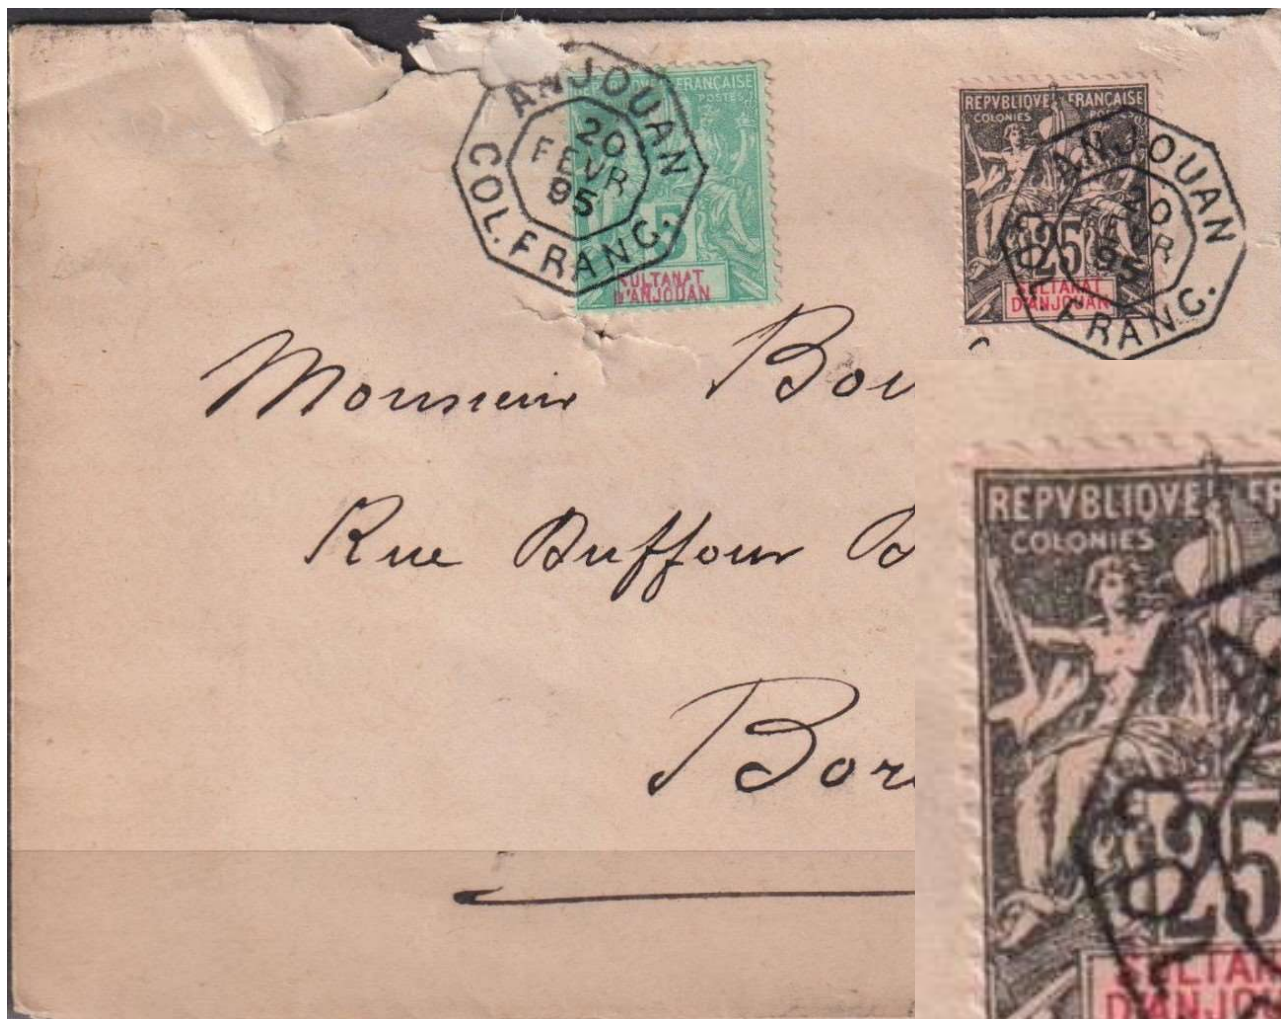 ANJOUAN
20
FEVR
95
COL. FRANC.
REPUBLIQUE FRANÇAISE
POSTES
5
SULTANAT
D'ANJOUAN
REPVBLIQVE FRANÇAISE
COLONIES POSTES
25
SULTANAT
D'ANJOUAN
ANJOUAN
20
FEVR
95
FRANC.
Monsieur Bou
Rue Buffour B
Bor
REPVBLIQVE FR
COLONIES
25
SULTAN
D'ANJOU